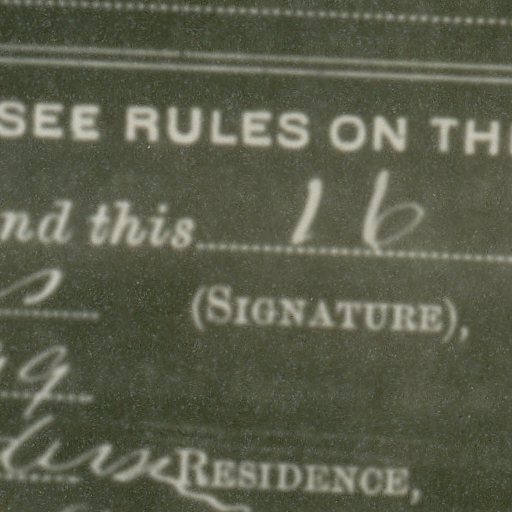 SEE RULES ON TH
nd this 16
(SIGNATURE),
9
RESIDENCE,